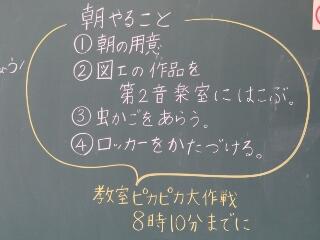 朝やること
①朝の用意
②図工の作品を
第2音楽室にはこぶ。
③虫かごをあらう。
④ロッカーをかたづける。
教室ピカピカ大作戦
8時10分までに